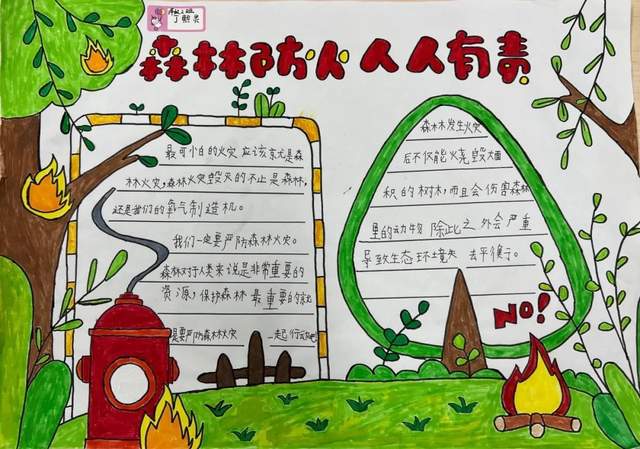 森林防火人人有责
最可怕的火灾应该就是森
林火灾，森林火灾毁灭的不止是森林，
还是我们的氧气制造机。
我们一定要严防森林火灾。
森林对于人类来说是非常重要的
资源，保护森林最重要的就
是要严防森林火灾 一起行动吧
森林发生火灾
后不仅能烧毁大面
积的树木，而且会伤害森林
里的动物 除此之外会严重
导致生态环境失去平衡了。
NO!